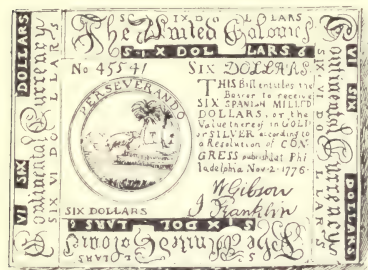 SIX DOLLARS
The United Colonies
SIX DOLLARS 6
No 45541
SIX DOLLARS.
PERSEVERANDO
THIS Bill entitles the
Bearer to receive
SIX SPANISH MILLED
DOLLARS, or the
Value thereof in GOLD
or SILVER according to
a Resolution of CON
GRESS published at Phi
ladelphia Nov-2-1776-
W Gibson
J Franklin
SIX DOLLARS
SIX DOLLARS
The United Colonies
SIX DOLLARS
VI SIX DOLLARS
Continental Currency
SIX VI DOLLARS
SIX VI DOLLARS
Continental Currency
VI SIX DOLLARS